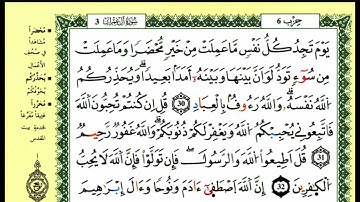 حِزْب 6
سُورَةُ آلِ عِمْرَان 3
يَوْمَ تَجِدُ كُلُّ نَفْسٍ مَّا عَمِلَتْ مِنْ خَيْرٍ مُّحْضَرًا وَمَا عَمِلَتْ
مِن سُوٓءٍ تَوَدُّ لَوْ أَنَّ بَيْنَهَا وَبَيْنَهُۥٓ أَمَدًۢا بَعِيدًا وَيُحَذِّرُكُمُ
ٱللَّهُ نَفْسَهُۥ وَٱللَّهُ رَءُوفٌۢ بِٱلْعِبَادِ 30 قُلْ إِن كُنتُمْ تُحِبُّونَ ٱللَّهَ
فَٱتَّبِعُونِى يُحْبِبْكُمُ ٱللَّهُ وَيَغْفِرْ لَكُمْ ذُنُوبَكُمْ وَٱللَّهُ غَفُورٌ رَّحِيمٌ
31 قُلْ أَطِيعُوا۟ ٱللَّهَ وَٱلرَّسُولَ فَإِن تَوَلَّوْا۟ فَإِنَّ ٱللَّهَ لَا يُحِبُّ
ٱلْكَٰفِرِينَ 32 إِنَّ ٱللَّهَ ٱصْطَفَىٰٓ ءَادَمَ وَنُوحًا وَءَالَ إِبْرَٰهِيمَ
مُحْضَرًا
مشاهداً
في صحف
الأعمال
يُحَذِّرُكُمُ
يخوّفكم
مُحَرَّرًا
عتيقاً مفرّغاً
لخدمة بيت
المقدس